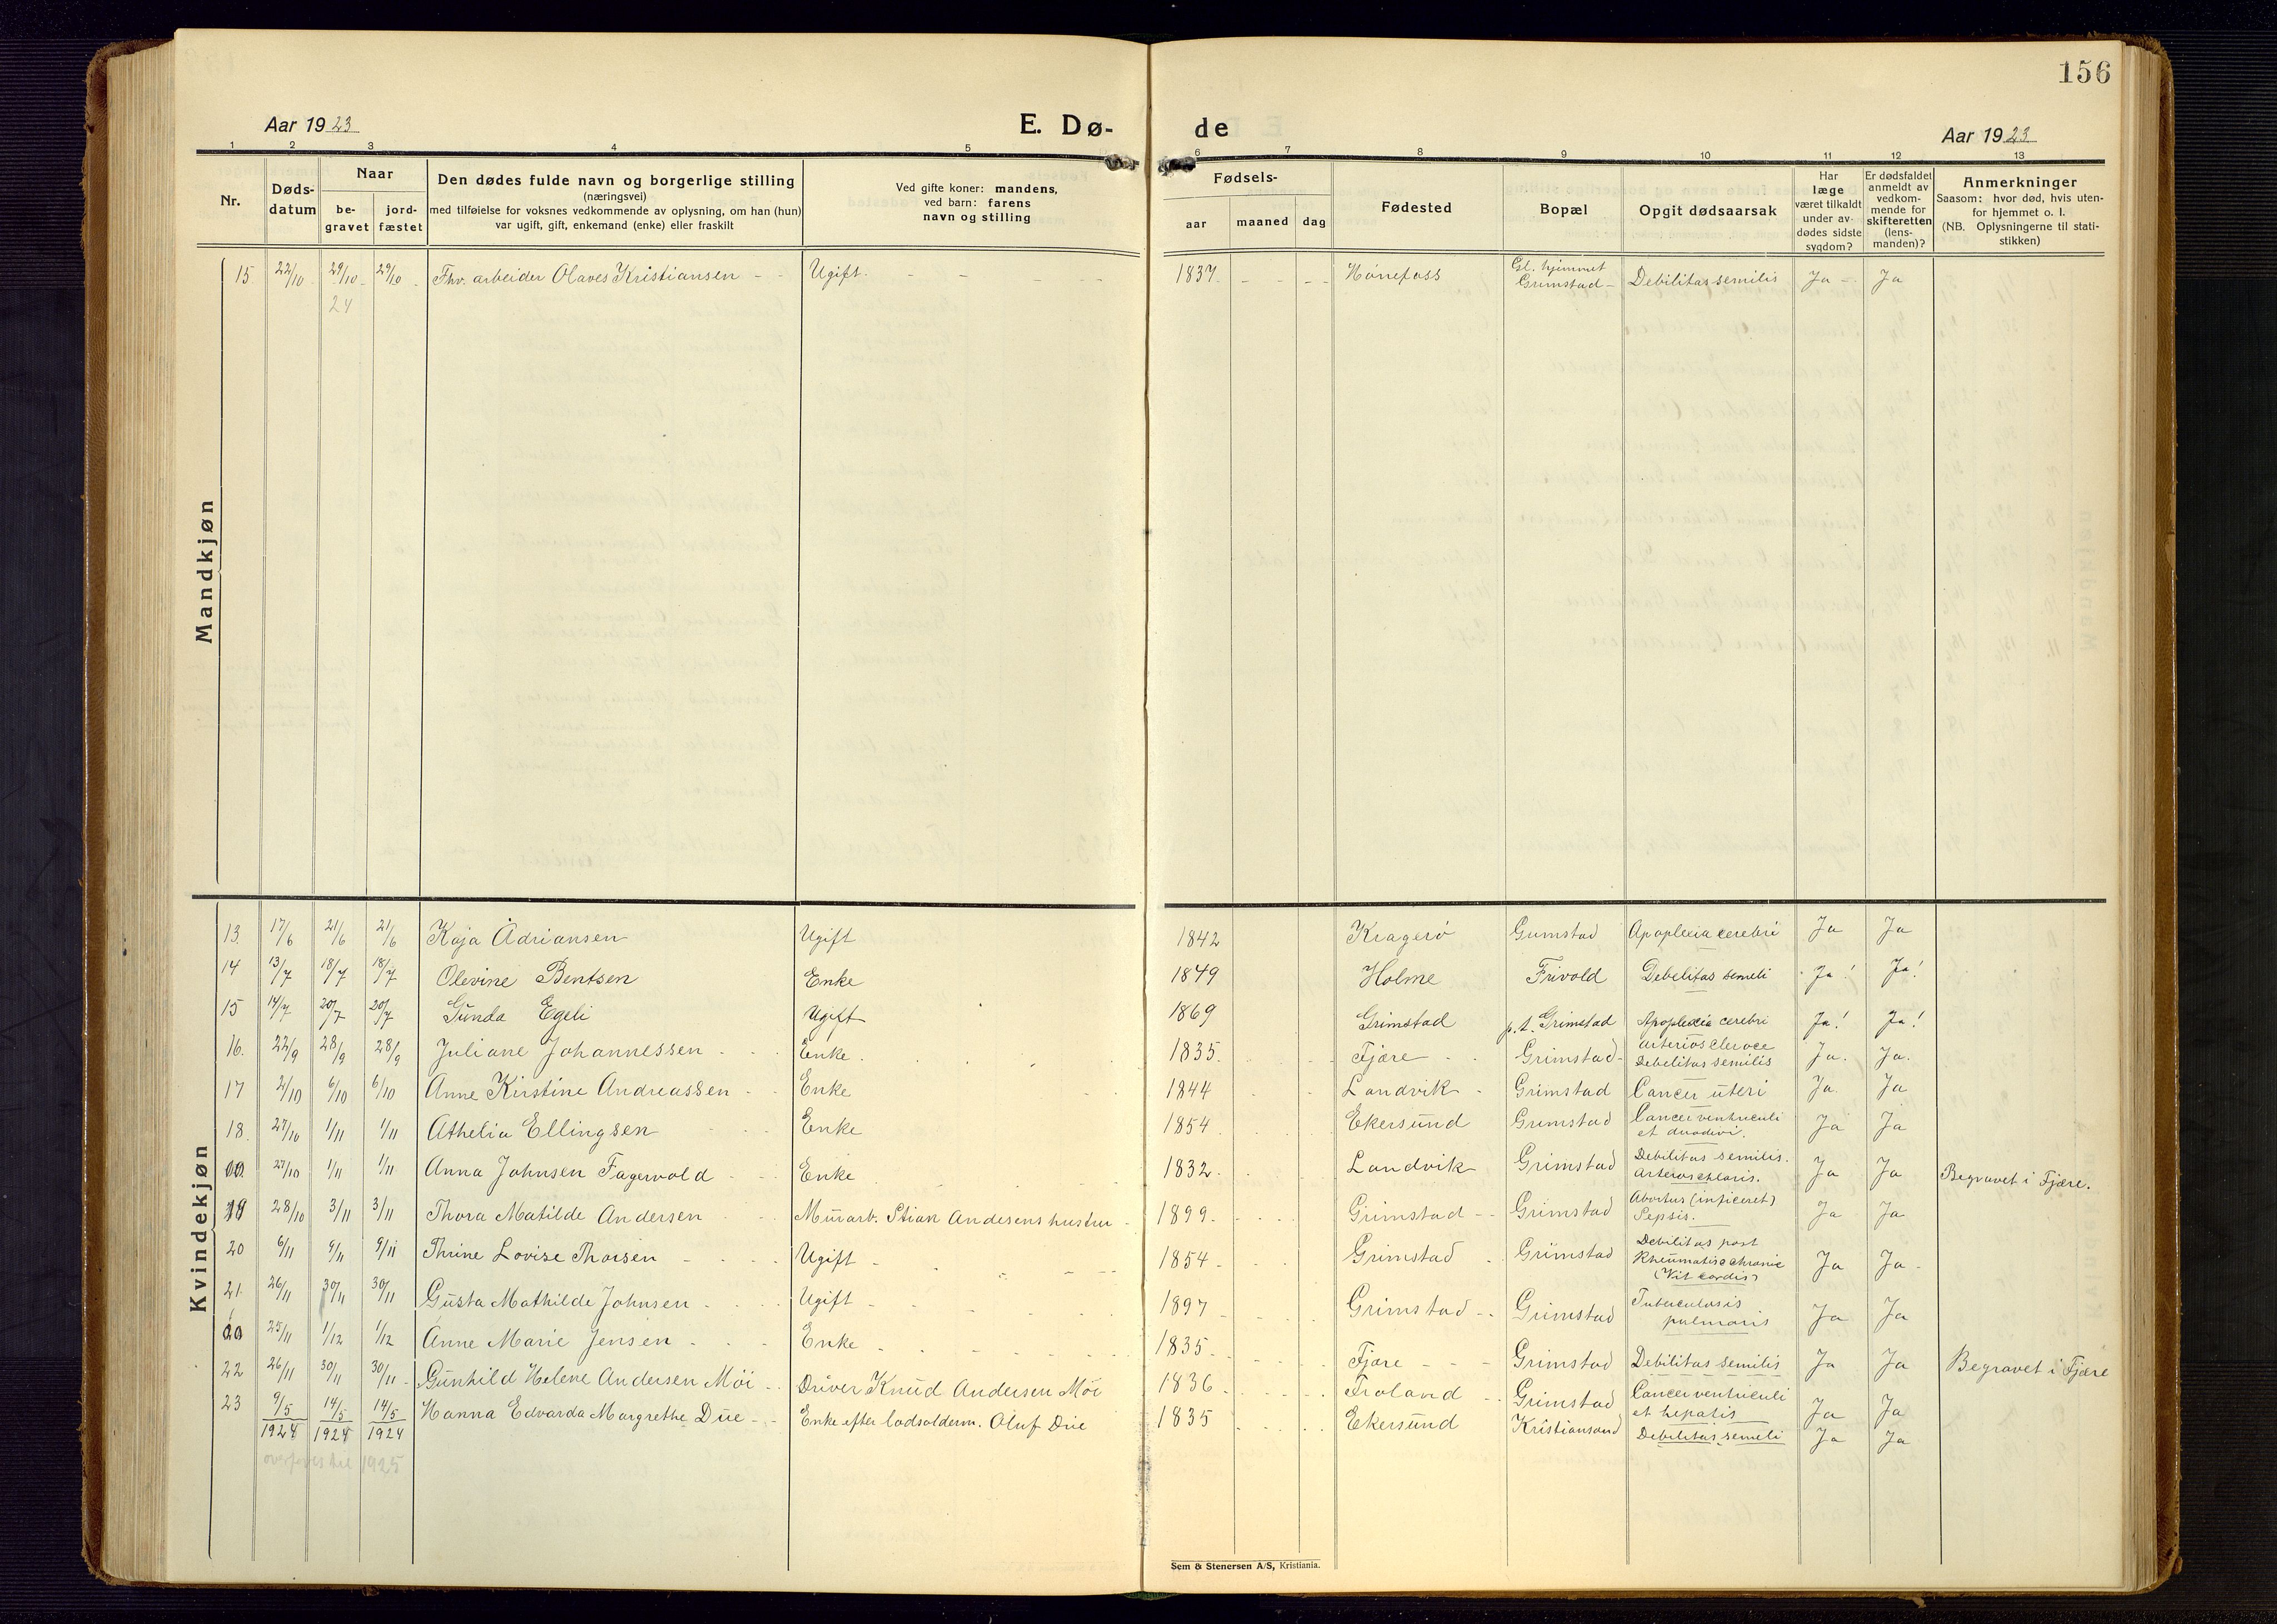 156
Aar 1923
E. Dø-
de
Aar 1923
1 2 3 4 5 6 7 8 9 10 11 12 13
Nr.
Døds-
datum
Naar
be-
gravet
jord-
fæstet
Den dødes fulde navn og borgerlige stilling
(næringsvei)
med tilføielse for voksnes vedkommende av oplysning, om han (hun)
var ugift, gift, enkemand (enke) eller fraskilt
Ved gifte koner: mandens,
ved barn: farens
navn og stilling
Fødsels-
aar
maaned
dag
Fødested
Bopæl
Opgit dødsaarsak
Har
læge
været tilkaldt
under av-
dødes sidste
sygdom?
Er dødsfaldet
anmeldt av
vedkom-
mende for
skifteretten
(lens-
manden)?
Anmerkninger
Saasom: hvor død, hvis uten-
for hjemmet o. l.
(NB. Oplysningerne til stati-
stikken)
Mandkjøn
15. 22/10 29/10 29/10 Fhv. arbeider Olaves Kristiansen Ugift. 1837 Hönefoss Gl. hjemmet Grimstad Debilitas semilis Ja Ja
24
Kvindekjøn
13. 17/6 21/6 21/6 Kaja Adriansen Ugift 1842 Kragerö Grimstad Apoplexia cerebri Ja Ja
14 13/7 18/7 18/7 Olevine Bentsen Enke 1849 Holme Frivold Debelitas semeli Ja! Ja!
15 14/7 20/7 20/7 Gunda Egeli Ugift 1869 Grimstad p.t. Grimstad Apoplexia cerebri Ja! Ja!
16. 22/9 28/9 28/9 Juliane Johannessen Enke. 1835. Fjære Grimstad Arteriosclerose Debelitas semilis Ja. Ja.
17 2/10 6/10 6/10 Anne Kirstine Andreassen Enke 1844 Landvik Grimstad Cancer uteri Ja. Ja
18. 27/10 1/11 1/11 Athelia Ellingsen Enke 1854 Ekersund Grimstad Cancer ventriculi et Ja Ja
27/10 1/11 1/11 Anna Johnsen Fagervold Enke 1832. Landvik Grimstad Debilitas semilis. Ja Ja Begravet i Fjære.
19 28/10 3/11 3/11 Thora Matilde Andersen Murarb. Stian Andersens hustru 1899. Grimstad Grimstad Abortus (inficeret) Sepsis. Ja Ja
20 6/11 9/11 9/11 Thrine Lovise Thorsen Ugift 1854 Grimstad Grimstad Debilitas post Rheumatisc chronic (Vit cordis) Ja Ja
21. 26/11 30/11 30/11 Gusta Mathilde Johnsen Ugift 1897 Grimstad Grimstad Tuberculosis pulmonis Ja Ja
25/11 1/12 1/12 Anne Marie Jensen Enke 1835. Fjære Grimstad Debilitas semilis Ja Ja Begravet i Fjære
22 26/11 30/11 30/11 Gunhild Helene Andersen Möi Driver Knud Andersen Möi 1836 Froland Grimstad Cancer ventriculi et hepatis Ja Ja
23 9/5 1924 14/5 1924 14/5 1924 Hanna Edvarda Margrethe Due Enke efter lodsolderm. Oluf Due 1835 Ekersund Kristiansand Debelitas semeli Ja Ja
overföres til 1925
Sem & Stenersen A/S, Kristiania.